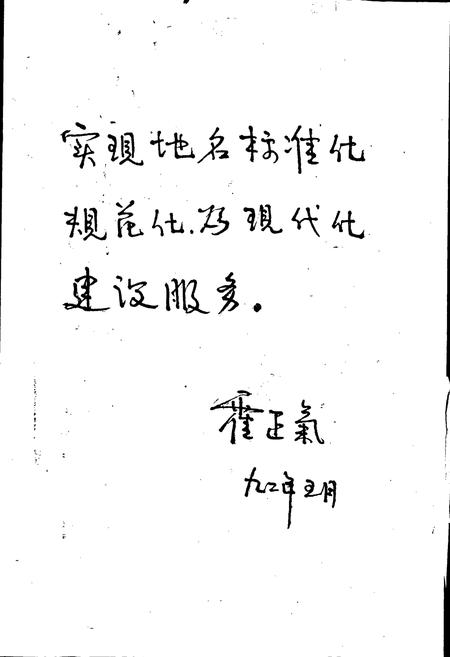 实现地名标准化
规范化、为现代化
建设服务。
霍正氣
九二年五月